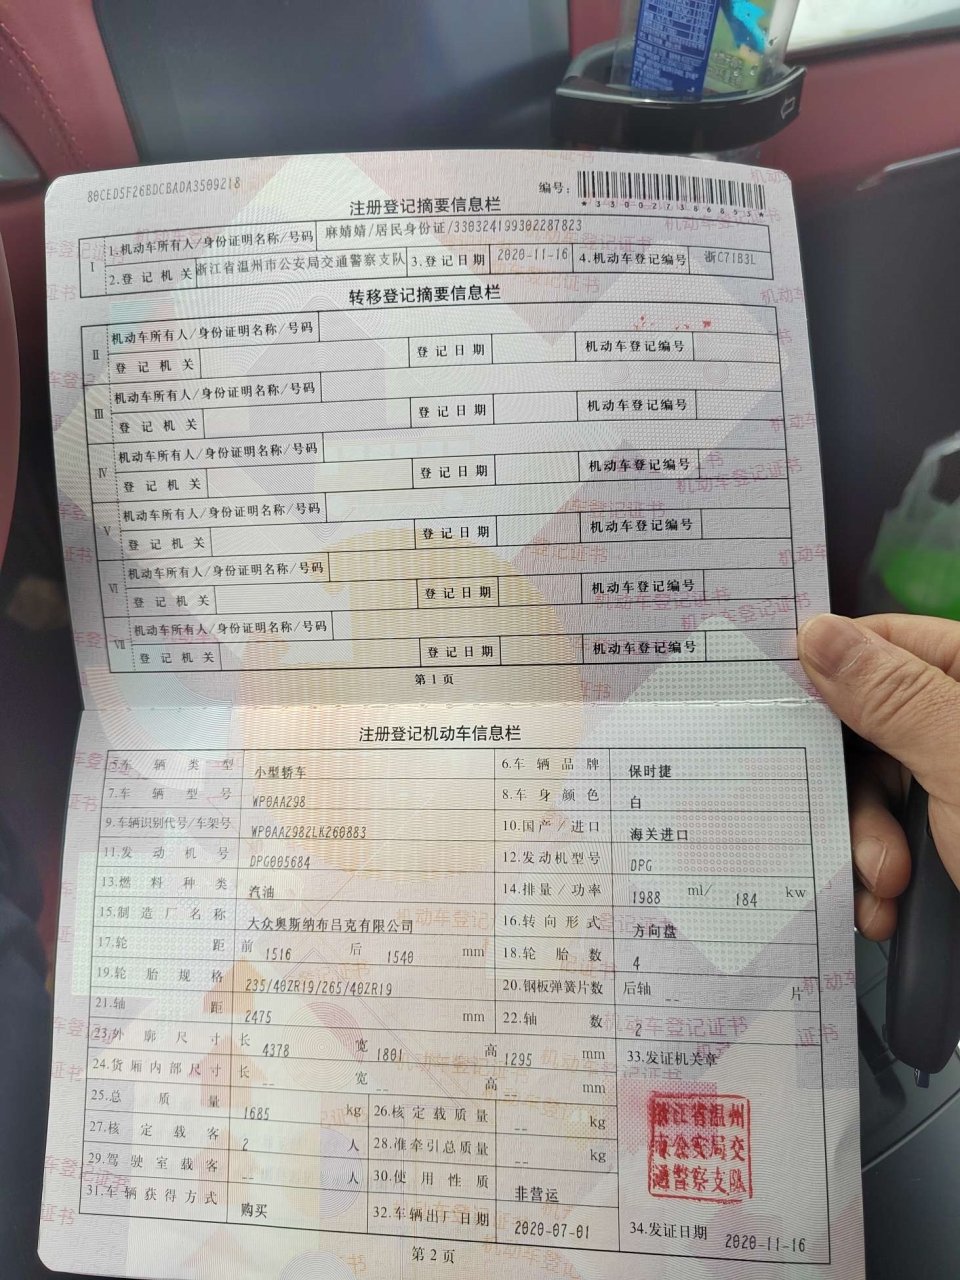 80CED5F26BDCBADA3509218
编号:
*330027386895*
注册登记摘要信息栏
I 1.机动车所有人/身份证明名称/号码 麻婧婧/居民身份证/330324199302287823
2.登记机关 浙江省温州市公安局交通警察支队 3.登记日期 2020-11-16 4.机动车登记编号 浙C71B3L
转移登记摘要信息栏
II 机动车所有人/身份证明名称/号码
登记机关 登记日期 机动车登记编号
III 机动车所有人/身份证明名称/号码
登记机关 登记日期 机动车登记编号
IV 机动车所有人/身份证明名称/号码
登记机关 登记日期 机动车登记编号
V 机动车所有人/身份证明名称/号码
登记机关 登记日期 机动车登记编号
VI 机动车所有人/身份证明名称/号码
登记机关 登记日期 机动车登记编号
VII 机动车所有人/身份证明名称/号码
登记机关 登记日期 机动车登记编号
第1页
注册登记机动车信息栏
5.车辆类型 小型轿车 6.车辆品牌 保时捷
7.车辆型号 WP0AA298 8.车身颜色 白
9.车辆识别代号/车架号 WP0AA2982LK260883 10.国产/进口 海关进口
11.发动机号 DPG005684 12.发动机型号 DPG
13.燃料种类 汽油 14.排量/功率 1988 ml/ 184 kw
15.制造厂名称 大众奥斯纳布吕克有限公司 16.转向形式 方向盘
17.轮距 前 1516 后 1540 mm 18.轮胎数 4
19.轮胎规格 235/40ZR19/265/40ZR19 20.钢板弹簧片数 后轴 -- 片
21.轴距 2475 mm 22.轴数 2
23.外廓尺寸 长 4378 宽 1801 高 1295 mm 33.发证机关章
24.货厢内部尺寸 长 -- 宽 -- 高 -- mm
25.总质量 1685 kg 26.核定载质量 -- kg
27.核定载客 2 人 28.准牵引总质量 -- kg
29.驾驶室载客 -- 人 30.使用性质 非营运
31.车辆获得方式 购买 32.车辆出厂日期 2020-07-01 34.发证日期 2020-11-16
浙江省温州
市公安局交
通警察支队
第2页